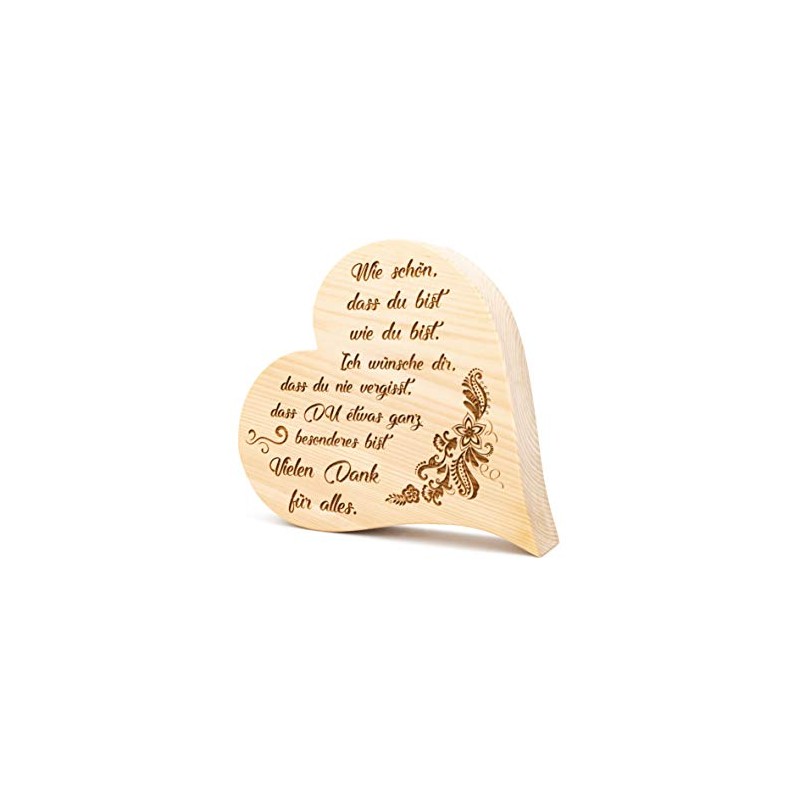 Wie schön,
dass du bist
wie du bist.
Ich wünsche dir,
dass du nie vergisst,
dass DU etwas ganz
besonderes bist
Vielen Dank
für alles.